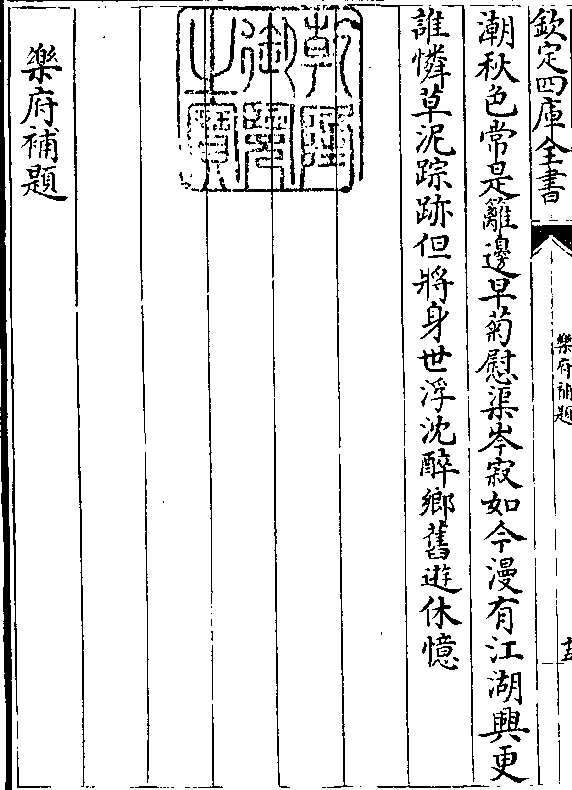 欽定四庫全書
樂府補題
十三
潮秋色常是籬邊早菊慰渠岑寂如今漫有江湖興更
誰憐草泥踪跡但將身世浮沈醉鄉舊遊休憶
乾隆
御覽
之寶
樂府補題